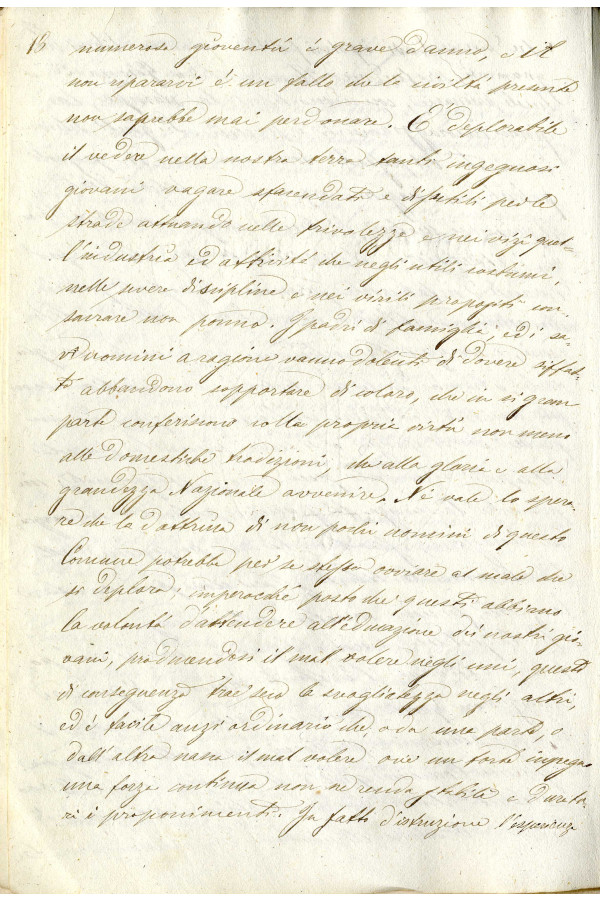 16 numerosa gioventù è grave danno, e il
non ripararvi è un fallo che la civiltà presente
non saprebbe mai perdonare. E' deplorabile
il vedere nella nostra terra tanti ingegnosi
giovani vagare sfacendati e disutili per le
strade attuando nelle frivolezze e nei vizi quel-
l'industria ed attività che negli utili costumi,
nelle severe discipline e nei virili propositi con-
sacrare non ponno. I padri di famiglia ed i sa-
vi uomini a ragione vanno dolenti di dovere siffat-
to abbandono sopportare di coloro, che in sì gran
parte conferiscono colla propria virtù non meno
alle domestiche tradizioni, che alla gloria e alla
grandezza Nazionale avvenire. Nè vale lo spera-
re che la dottrina di non pochi uomini di questo
Comune potrebbe per se stessa ovviare al male che
si deplora; imperocché posto che questi abbiano
la volontà d'attendere all'educazione dei nostri gio-
vani, producendosi il mal volere negli uni, questi
di conseguenza trae seco la svogliatezza negli altri,
ed è facile anzi ordinario che, o da una parte, o
dall'altra nasca il mal volere ove un forte impegno
una forza continua non ne renda stabili e duratu-
ri i proponimenti. In fatto d'istruzione l'esperienza